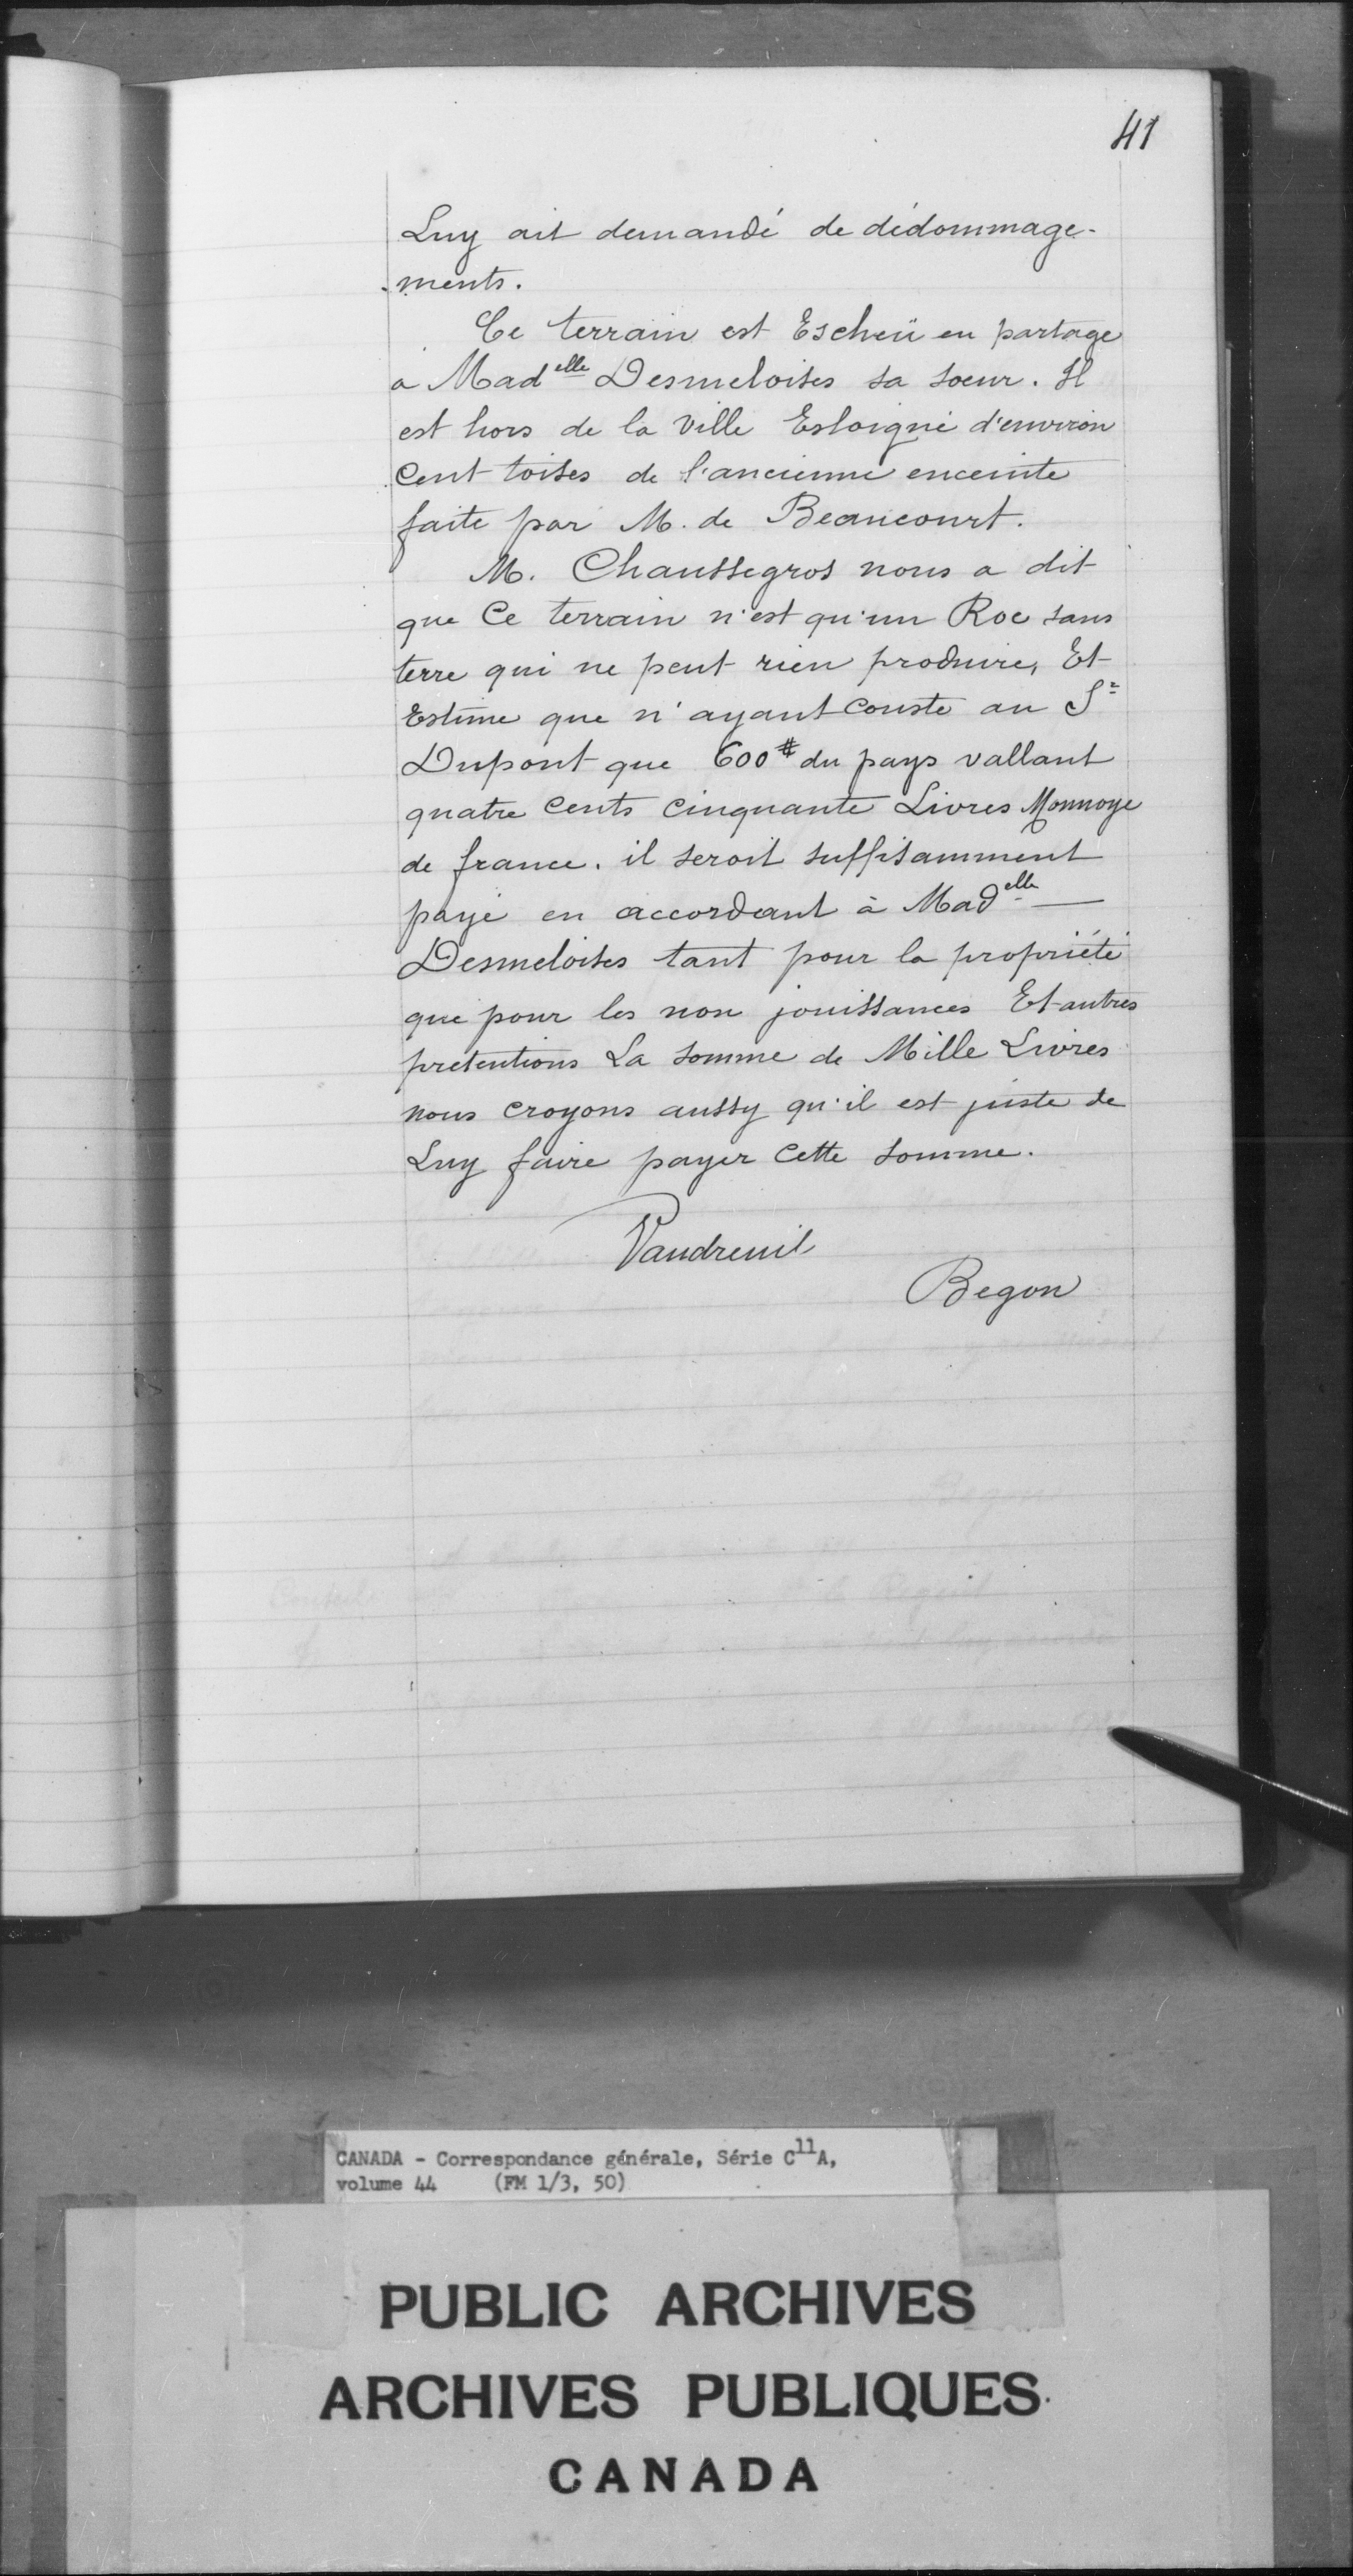 41
Luy ait demandé de dédommage-
-ments.
Ce terrain est Escheü en partage
a Madelle Desmeloises sa soeur. Il
est hors de la Ville Esloigné d'environ
Cent toises de l'ancienne enceinte
faite par M. de Beaucourt.
M. Chaussegros nous a dit
que Ce terrain n'est qu'un Roc sans
terre qui ne peut rien produire, Et
Estime que n'ayant couste au Sr
Dupont que 600# du pays vallant
quatre Cents Cinquante Livres Monnoye
de france. il seroit suffisamment
payé en accordant à Madelle —
Desmeloises tant pour la propriété
que pour les non jouissances Et autres
pretentions La somme de Mille Livres
nous croyons aussy qu'il est juste de
Luy faire payer Cette somme.
Vaudreuil
Begon
CANADA - Correspondance générale, Série C11A,
volume 44 (FM 1/3, 50)
PUBLIC ARCHIVES
ARCHIVES PUBLIQUES
CANADA